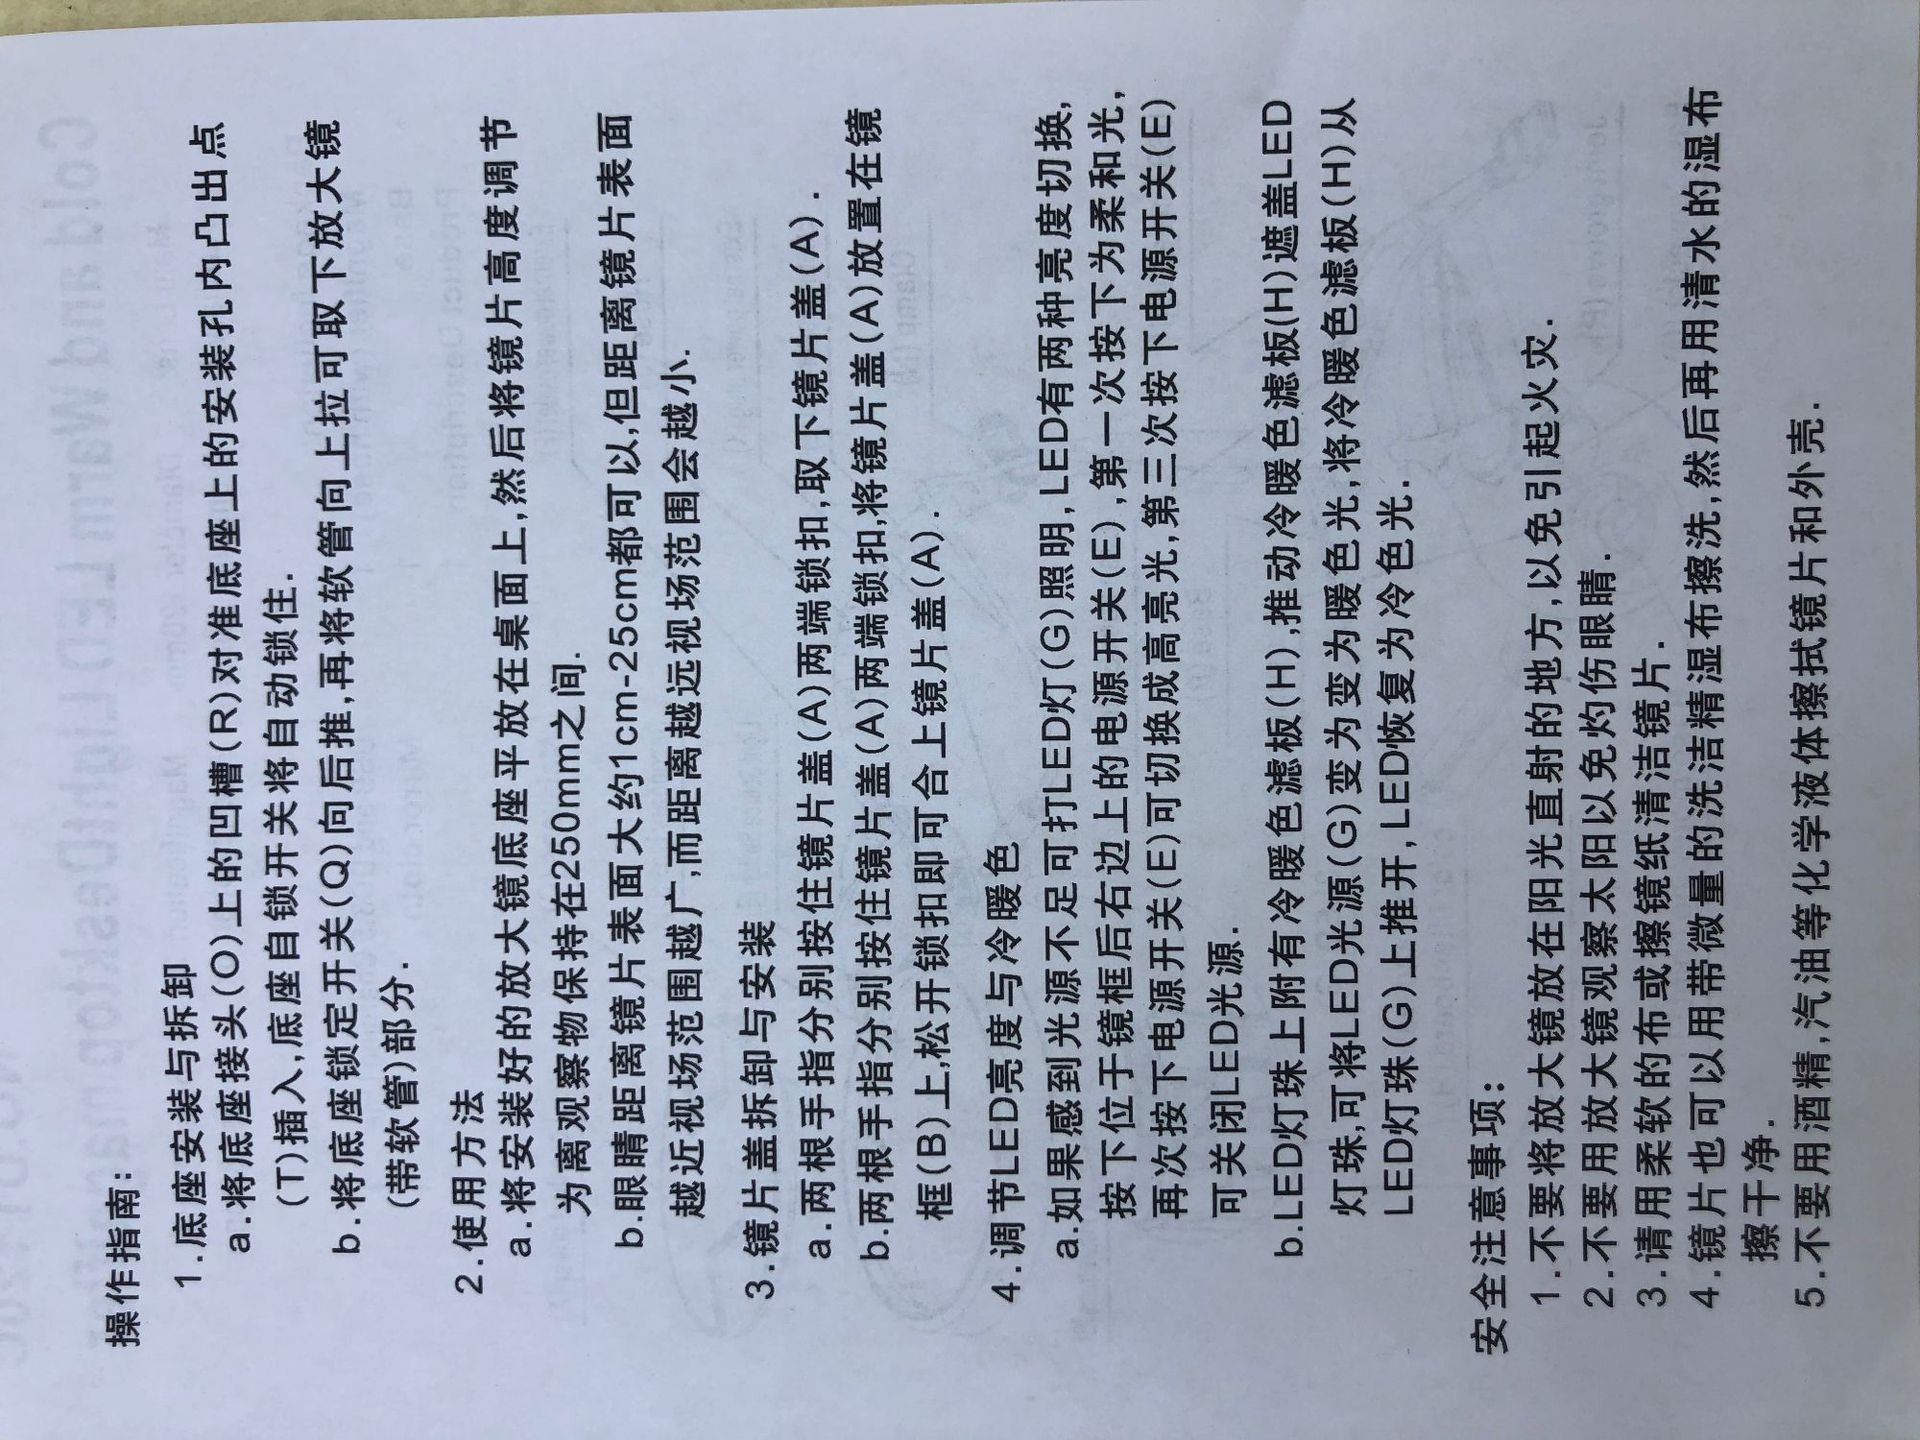 操作指南:
1.底座安装与拆卸
a.将底座接头(O)上的凹槽(R)对准底座上的安装孔内凸出点
(T)插入,底座自锁开关将自动锁住.
b.将底座锁定开关(Q)向后推,再将软管向上拉可取下放大镜
(带软管)部分.
2.使用方法
a.将安装好的放大镜底座平放在桌面上,然后将镜片高度调节
为离观察物保持在250mm之间.
b.眼睛距离镜片表面大约1cm-25cm都可以,但距离镜片表面
越近视场范围越广,而距离越远视场范围会越小.
3.镜片盖拆卸与安装
a.两根手指分别按住镜片盖(A)两端锁扣,取下镜片盖(A).
b.两根手指分别按住镜片盖(A)两端锁扣,将镜片盖(A)放置在镜
框(B)上,松开锁扣即可合上镜片盖(A).
4.调节LED亮度与冷暖色
a.如果感到光源不足可打LED灯(G)照明,LED有两种亮度切换,
按下位于镜框后右边上的电源开关(E),第一次按下为柔和光,
再次按下电源开关(E)可切换成高亮光,第三次按下电源开关(E)
可关闭LED光源.
b.LED灯珠上附有冷暖色滤板(H),推动冷暖色滤板(H)遮盖LED
灯珠,可将LED光源(G)变为变为暖色光,将冷暖色滤板(H)从
LED灯珠(G)上推开,LED恢复为冷色光.
安全注意事项:
1.不要将放大镜放在阳光直射的地方,以免引起火灾.
2.不要用放大镜观察太阳以免灼伤眼睛.
3.请用柔软的布或擦镜纸清洁镜片.
4.镜片也可以用带微量的洗洁精湿布擦洗,然后再用清水的湿布
擦干净.
5.不要用酒精,汽油等化学液体擦拭镜片和外壳.